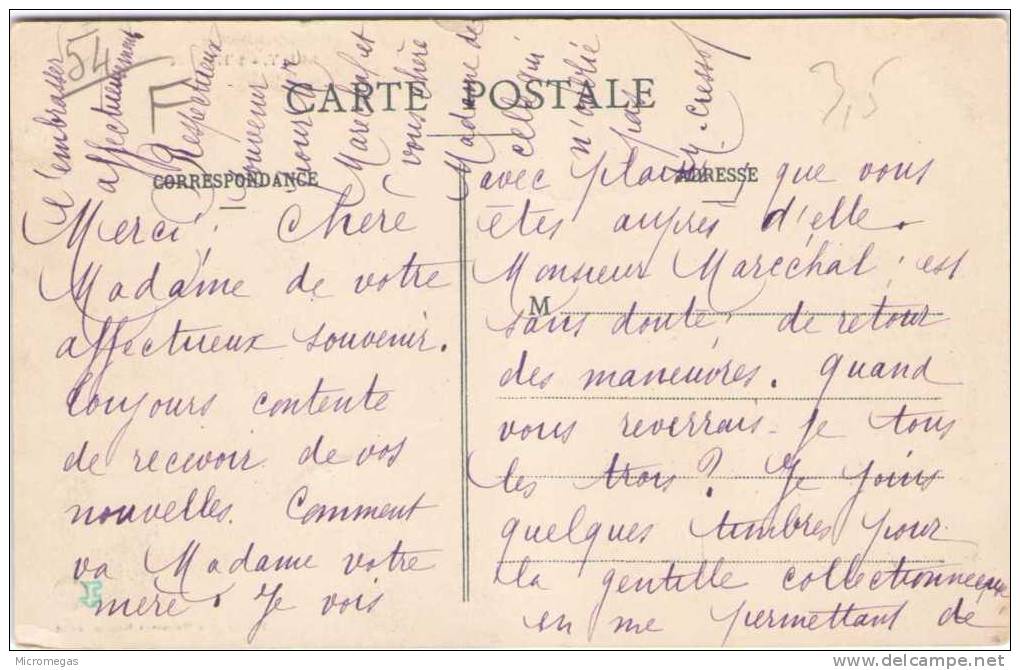 54
F
3,5
CARTE POSTALE
CORRESPONDANCE
ADRESSE
M
Merci, Chère
Madame de votre
affectueux souvenir.
Toujours contente
de recevoir de vos
nouvelles. Comment
va Madame votre
mère. Je vois
avec plaisir que vous
êtes aupres d'elle.
Monsieur Maréchal, est
sans doute, de retour
des manœuvres. Quand
vous reverrais-je tous
les trois? Je joins
quelques timbres pour
la gentille collectionneuse
en me permettant de
l'embrasser
affectueusement
Respectueux
souvenir à
Monsieur
Maréchal et
vous chère
Madame de
celle qui
n'oublie
pas
Cressot
Micromegas
delcampe.net